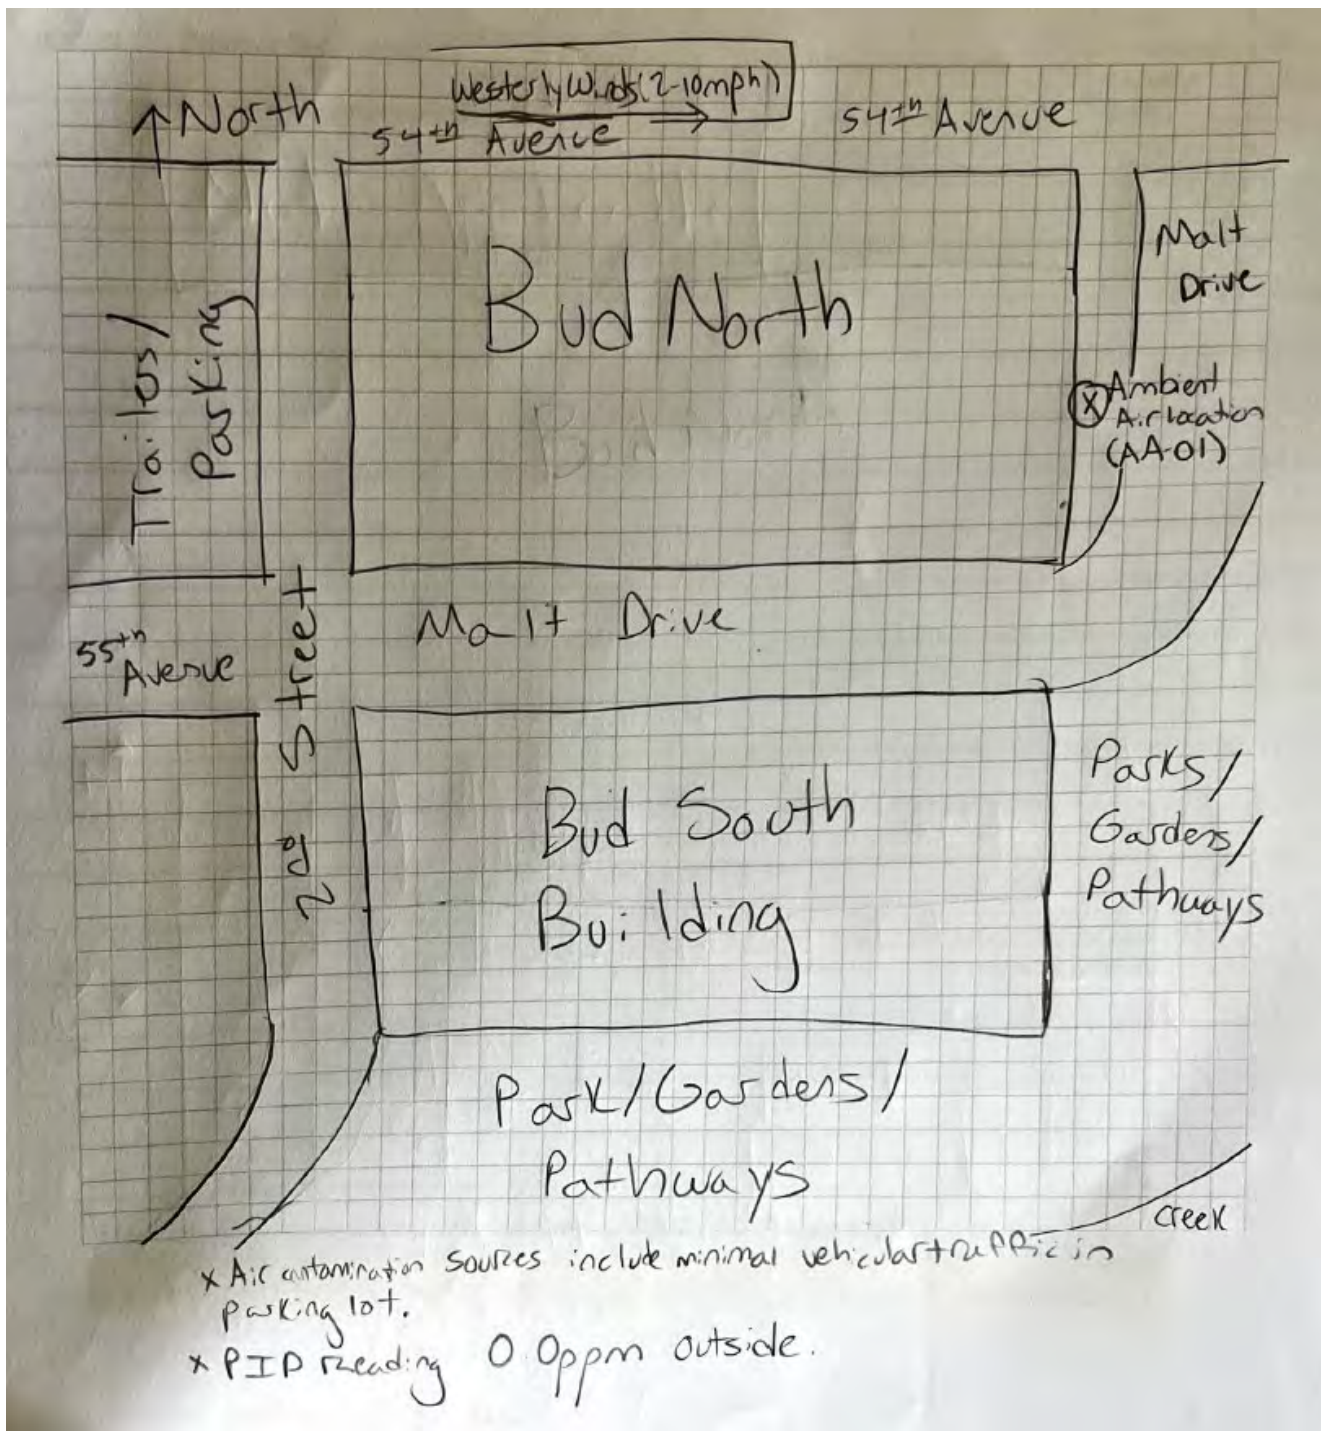 Westerly Winds (2-10mph)
North
54th Avenue
54th Avenue
Malt
Drive
Bud North
Trailers/
Parking
Ambient
Air location
(AA-01)
Malt Drive
55th
Avenue
2nd Street
Bud South
Building
Parks/
Gardens/
Pathways
Park/Gardens/
Pathways
Creek
x Air contamination sources include minimal vehicular traffic in
parking lot.
x PID Reading 0.0ppm outside.